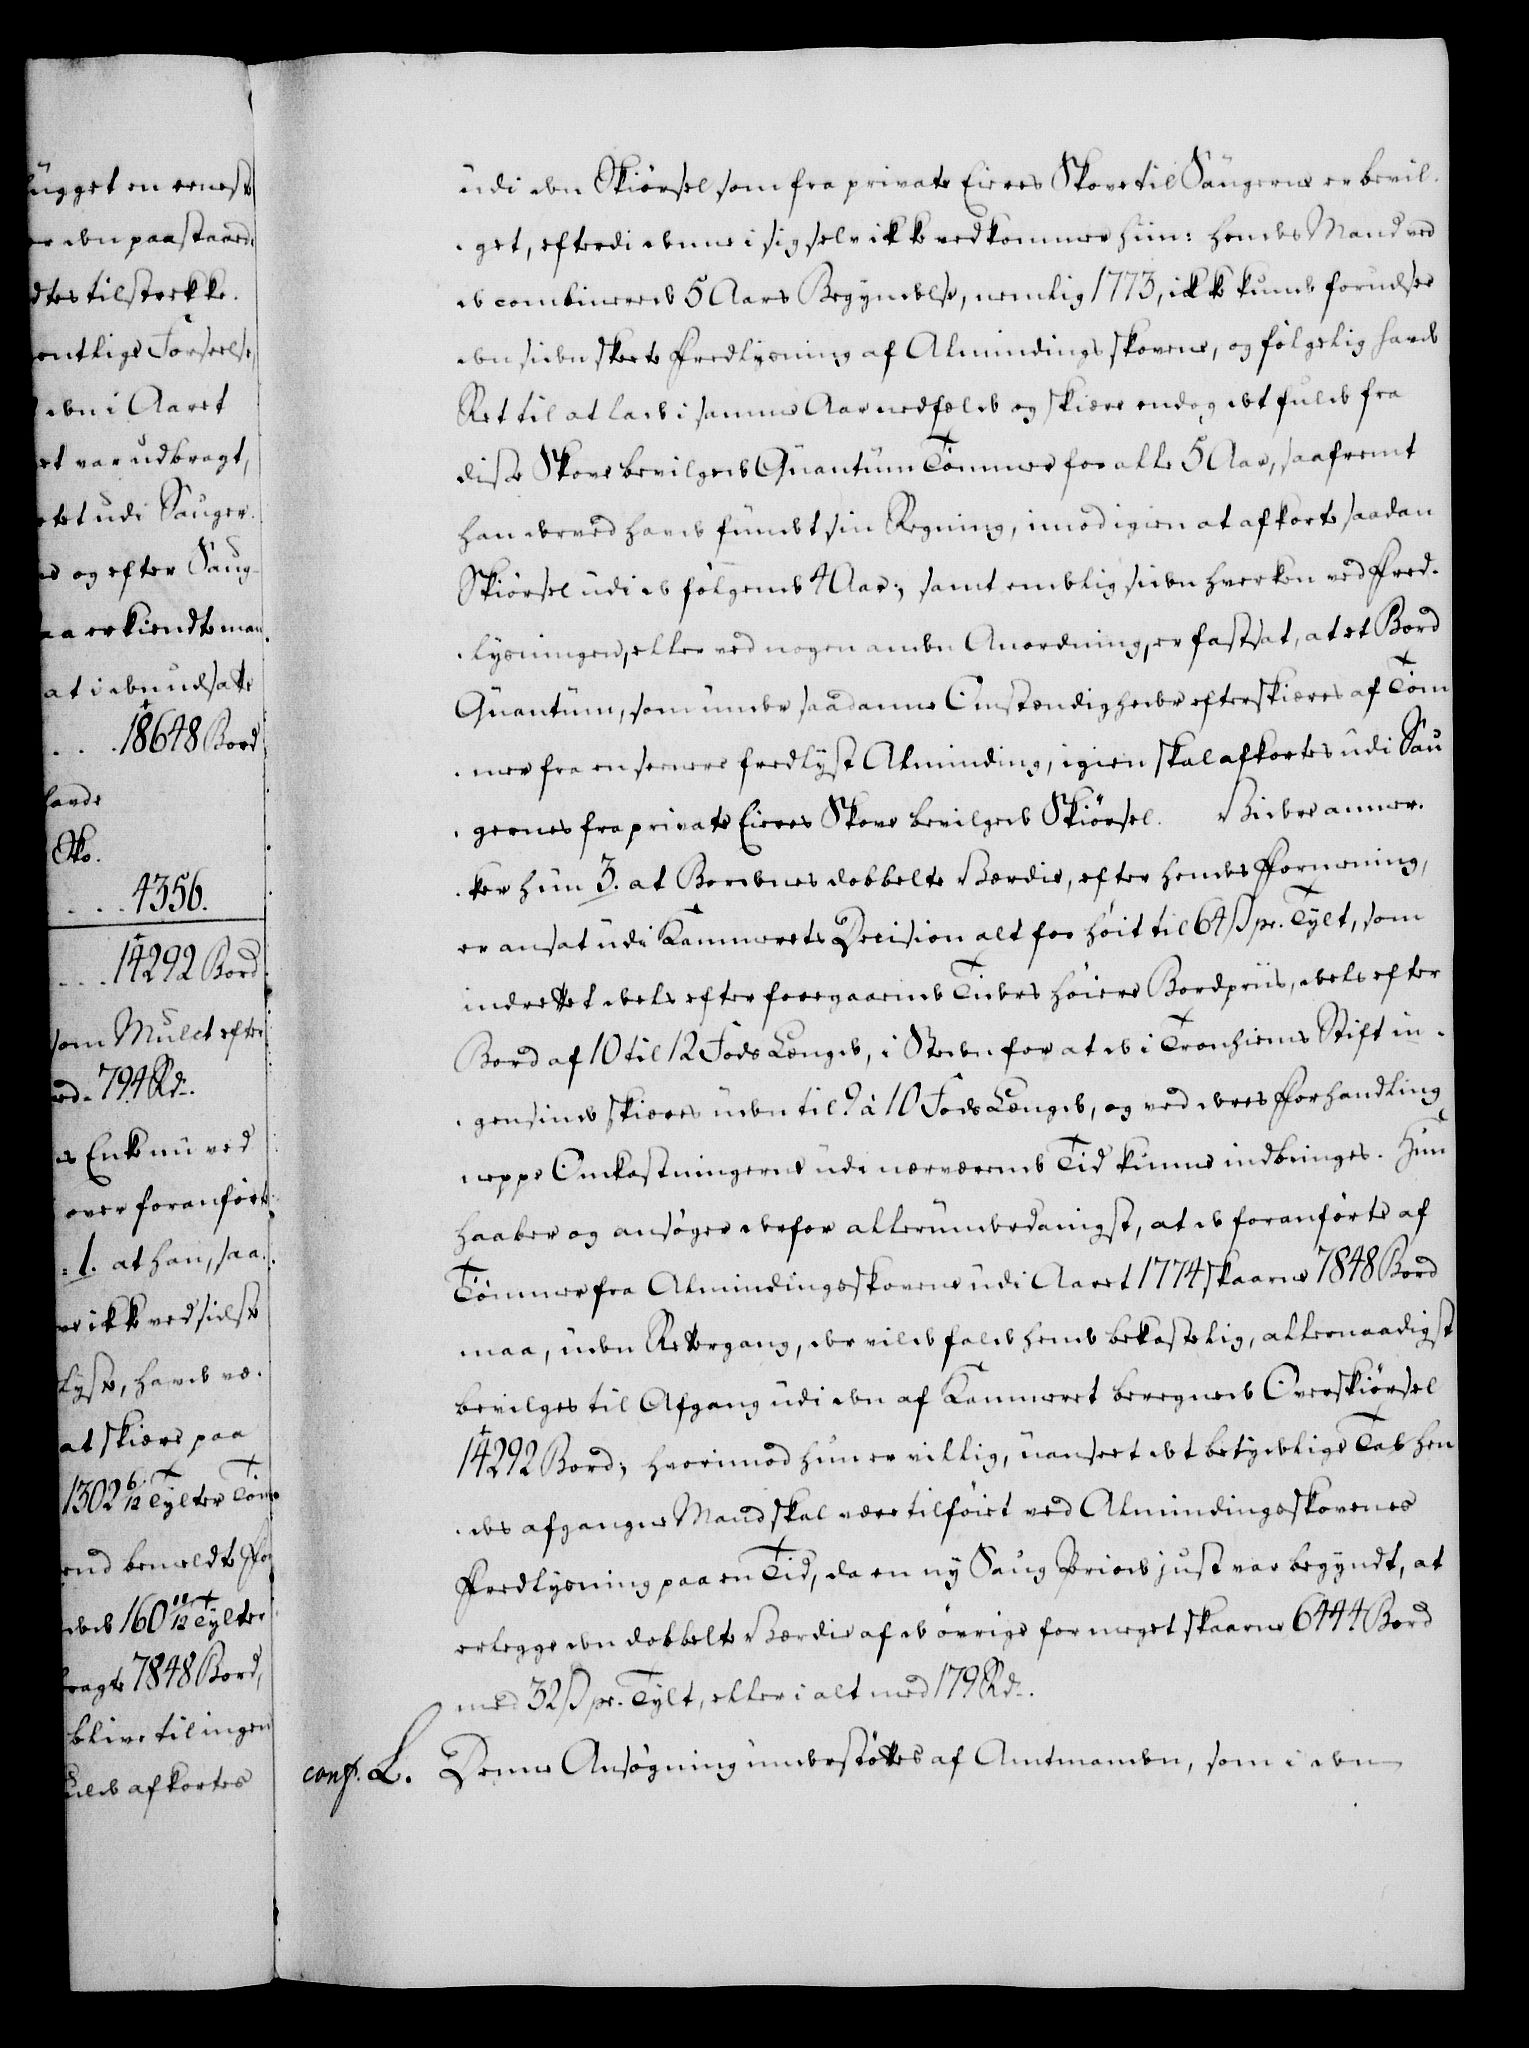 lugget en eeneste
er den paastaaed
dtes tilstrekke.
entlige Forseelse,
den i Aaret
et var udbragt,
tet udi Sauger.
ne og efter Saug-
aa erkiendte man
at i den udsatte
. . . 18648 Bord
havde
Sk.
. . . 4356.
. . . 14292 Bord
som Mulct efter
ed. 794 Rd.
s Enke nu ved
over foranført
: 1. at han, saa.
ve ikke ved sidste
lyst, havde væ.
at skiære paa
1302 6/12 Tylter Töm
end bemeldte For
dede 160 11/12 Tylter
bragte 7848 Bord,
blive til ingen
ulde afkortes
udi den Skiörsel som fra private Eieres Skove til Saugerne er bevil.
get, efterdi denne i sig selv ikke vedkommer hiin: hendes Mand ved
de combinerede 5 Aars Begyndelse, nemlig 1773, ikke kunde forudsee
den siden skeete Fredlysning af Almindings skovene, og følgelig havde
Ret til at lade i samme Aar nedfælde og skiære endog det fulde fra
disse Skove bevilgede Quantum Tömmer for alle 5 Aar, saafremt
han derved havde fundet sin Regning, imod igien at afkorte saadan
Skiörsel udi de følgende 4 Aar; samt endelig siden hverken ved Fred.
lysningen, eller ved nogen anden Anordning, er fastsat, at et Bord
Quantum, som under saadanne Omstændigheder efterskiæres af Töm
mer fra en seenere fredlyst Alminding, igien skal afkortes udi Sau
gernes fra private Eieres Skove bevilgede Skiörsel. Videre anmer.
ker hun 3. at Bordenes dobbelte Værdie, efter hendes Formening,
er ansat udi Kammerets Decision alt for høit til 64 ß pr. Tylt, som
indrettet deels efter foregaaende Tiders høiere Bordpriis, deels efter
Bord af 10 til 12 Fods Længde, i Steden for at de i Tronhiems Stift in.
gensinde skiæres uden til 9 à 10 Fods Længde, og ved deres Forhandling
neppe Omkostningerne udi nærværende Tid kunne indbringes. Hun
haaber og ansøger derfor allerunderdanigst, at de foranførte af
Tömmer fra Almindingsskovene udi Aaret 1774 skaarne 7848 Bord
maa, uden Rettergang, der vilde falde hende bekostelig, allernaadigst
bevilges til Afgang udi den af Kammeret beregnede Overskiörsel
14292 Bord; hvorimod hun er villig, uanseet det betydelige Tab hen
des afgangne Mand skal være tilföiet ved Almindingsskovenes
Fredlysning paa en Tid, da en ny Saug Periode just var begyndt, at
erlegge den dobbelte Værdie af de øvrige for meget skaarne 6444 Bord
med 32 ß pr. Tylt, eller i alt med 179 Rd.
conf. L. Denne Ansøgning understöttes af Amtmanden, som i den